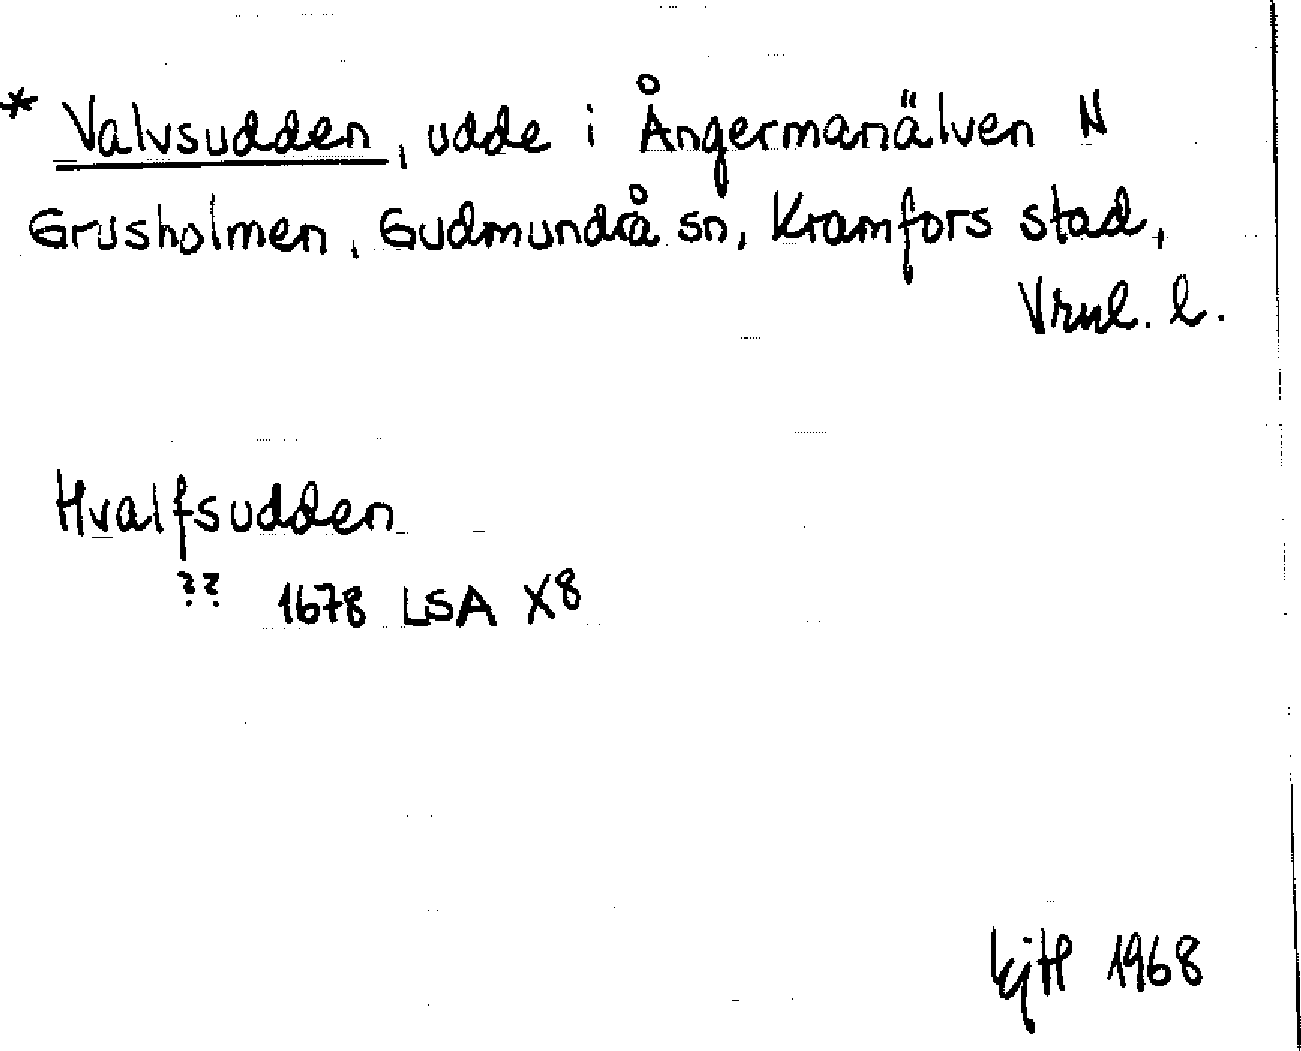 * Valvsudden, udde i Ångermanälven N
Grusholmen, Gudmundrå sn, Kramfors stad,
Vrnl. l.
Hvalfsudden
?? 1678 LSA X8
1968